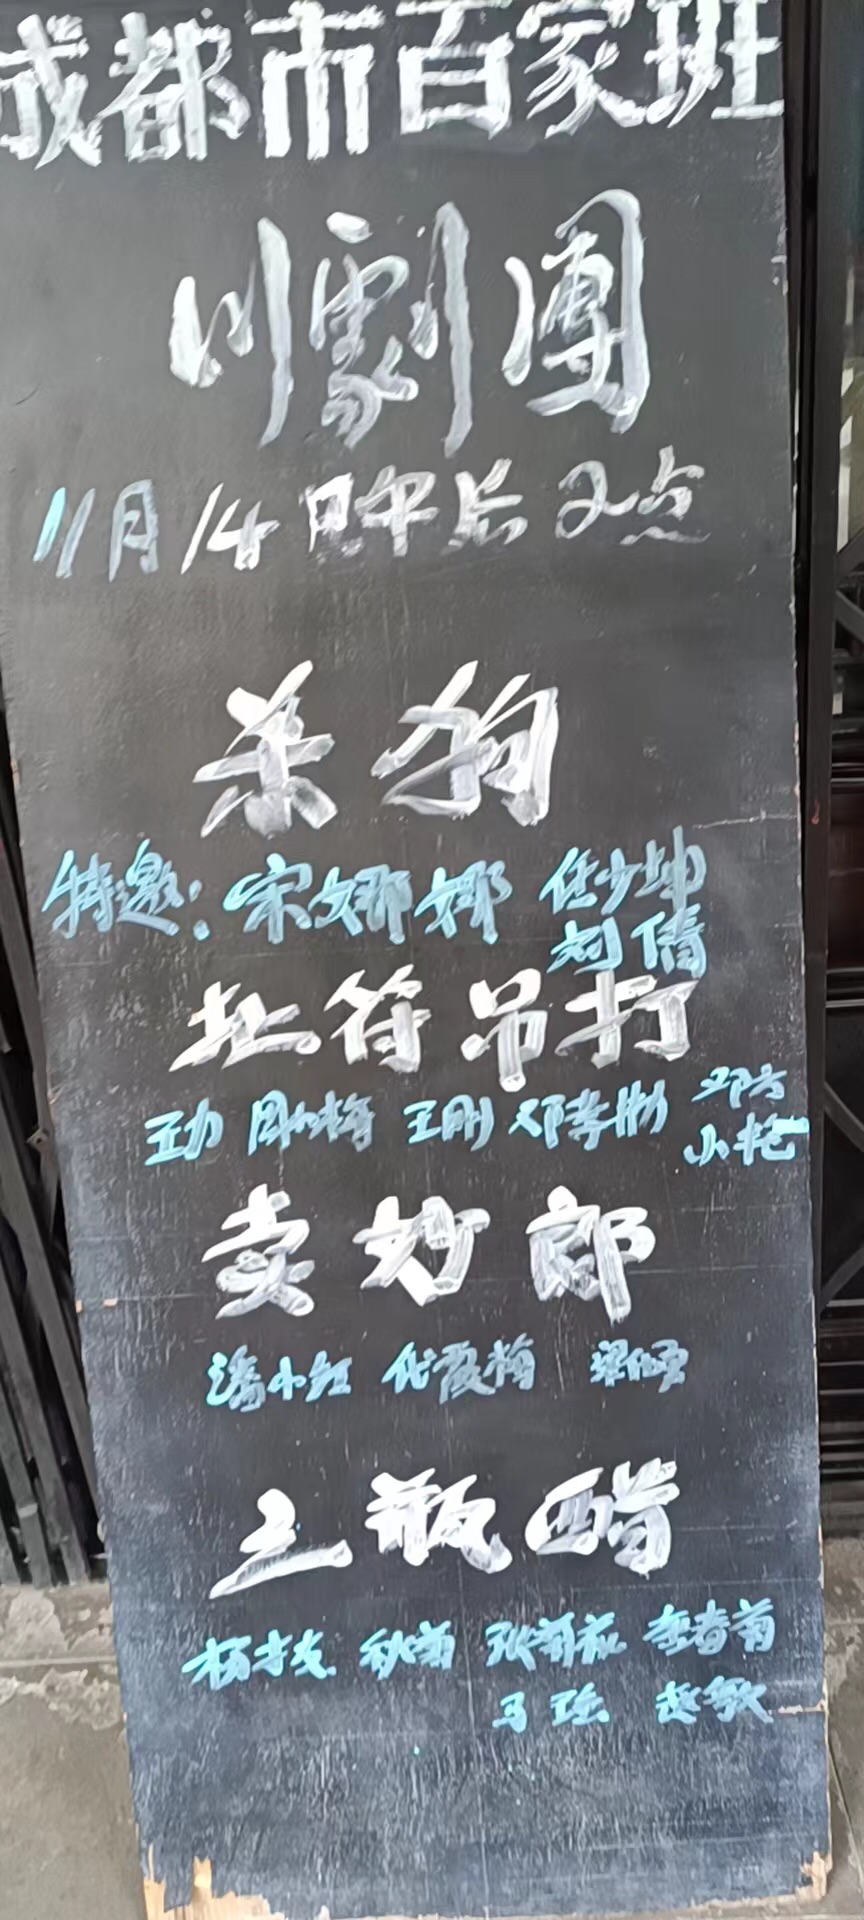 成都市百家班
川劇團
11月14日午后2点
杀狗
特邀：宋娜娜 任少坤
刘倩
扯符吊打
王力 周小梅 王刚 邓孝彬 邓方
小艳
卖妙郎
潘小红 代霞梅 梁倾
三瓶醋
杨才友 秋菊 张菊花 李春菊
马玲 赵敏